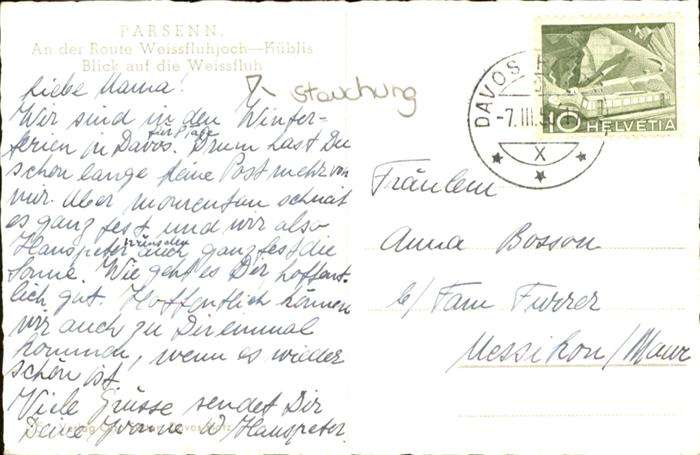 PARSENN.
An der Route Weissfluhjoch—Küblis
Blick auf die Weissfluh
Stauchung
Liebe Mama!
Wir sind in den Winter-
ferien in Davos. Drum hast Du
schon lange keine Post mehr von
mir. Aber momentan schneit
es ganz fest und wir also
Hanspeter auch wünschen ganz fest die
Sonne. Wie geht es Dir, hoffent-
lich gut. Hoffentlich können
wir auch zu Dir einmal
kommen, wenn es wieder
schön ist.
Viele Grüsse sendet Dir
Deine Yvonne u/ Hanspeter.
Verlag
DAVOS
-7.III.
X
10 HELVETIA
Fräulein
Anna Bosson
b/ Fam Furrer
Uessikon/Maur